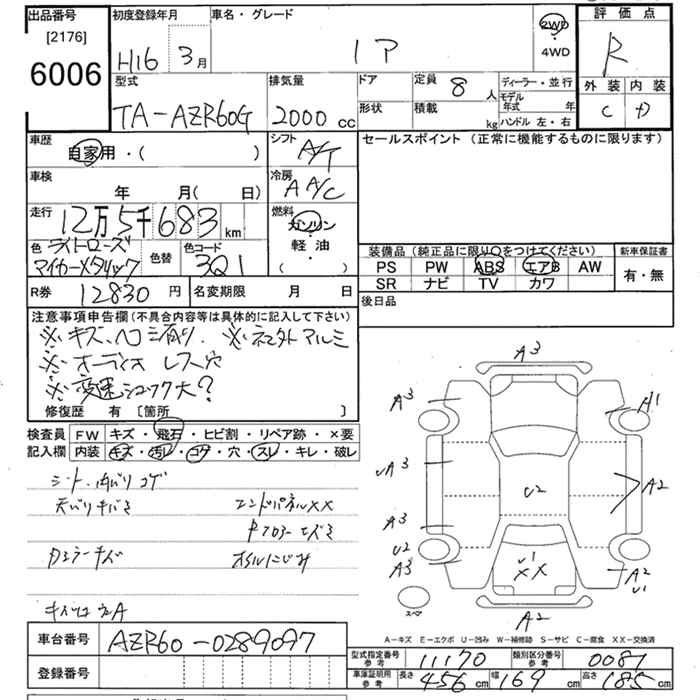 出品番号 初度登録年月 車名・グレード 2WD 評価点
[2176] H16 3月 4WD R
6006
型式 排気量 ドア 定員 8人 ディーラー・並行 外装 内装
TA-AZR60G 2000cc 形状 積載 kg モデル年式 年 C D
ハンドル 左・右
車歴 自家用・( ) シフト A/T セールスポイント (正常に機能するものに限ります)
車検 年 月(日) 冷房 A A/C
走行 12万5千683km 燃料 ガソリン・軽油・( )
色 ライトローズマイカーメタリック 色替 色コード 3Q1
装備品 (純正品に限り○をつけてください) 新車保証書
PS PW ABS エアB AW 有・無
SR ナビ TV カワ
R券 12830円 名変期限 月 日 後日品
注意事項申告欄(不具合内容等は具体的に記入して下さい)
※キズ、ヘコミ有り. ※ネエ外アルミ
※オーディオレス穴
※変速ショック大?
修復歴 有 [箇所 ]
検査員 FW キズ・飛石・ヒビ割・リペア跡・×要
記入欄 内装 キズ・汚レ・コゲ・穴・スレ・キレ・破レ
シート、内バリコゲ
天バリキバミ エンドパネルXX
RフロアーエズミDミラーキズ オイルにじみ
A3
A3 A1
A3 A2
U2
A3
U2
A3 U1 A2
XX U1
スペア A2
A-キズ E-エクボ U-凹み W-補修跡 S-サビ C-腐食 XX-交換済
車台番号 AZR60-0289097
型式指定番号 参考 11170 類別区分番号 参考 0081
登録番号
車庫証明用 参考 長さ 456cm 幅 169cm 高さ 185cm